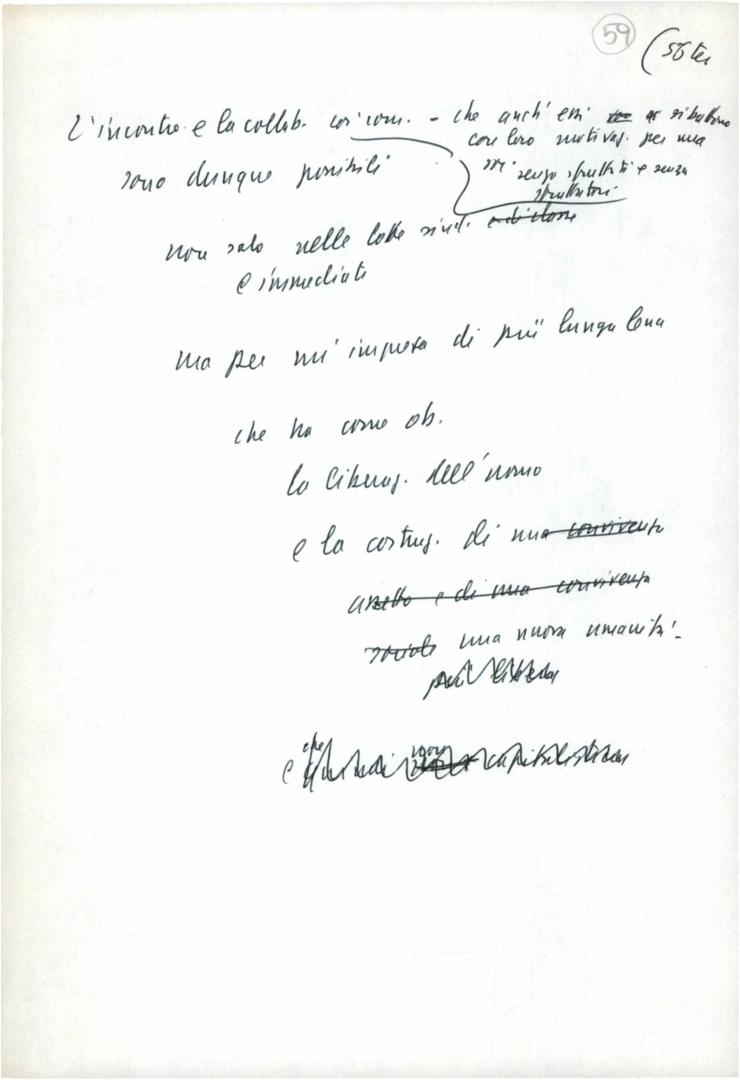 59
(56 ter
L'incontro e la collab. coi com. - che anch'essi si battono
con loro motivaz. per una
sono dunque possibili
senza sfruttati e senza
sfruttatori
non solo nelle lotte sind. e di classe
e immediate
ma per un' impresa di più lunga lena
che ha come ob.
la liberaz. dell'uomo
e la costruz. di una convivenza
assetto e di una convivenza
sociale una nuova umanità.
più libera
e che quindi non capitalistica